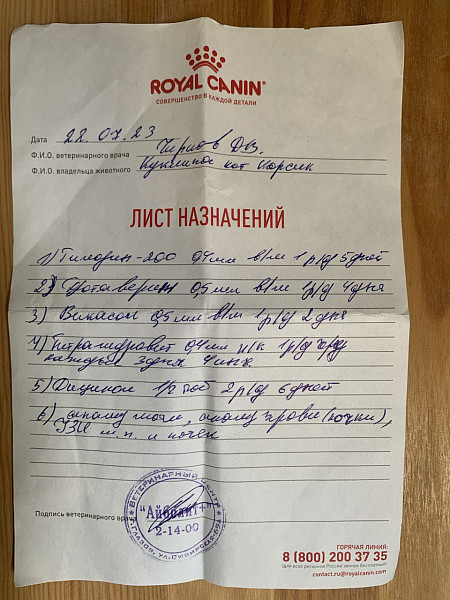 ROYAL CANIN
СОВЕРШЕНСТВО В КАЖДОЙ ДЕТАЛИ
Дата 22.07.23
Ф.И.О. ветеринарного врача Чирков Д.В.
Ф.И.О. владельца животного кот Корсик
ЛИСТ НАЗНАЧЕНИЙ
1) 200 0,4 мл в/м 1 р/д 5 дней
2) Дротаверин 0,5 мл в/м 1 р/д 4 дня
3) Викасол 0,5 мл в/м 1 р/д 2 дня
4) 0,4 мл п/к 1 р/д
каждые 3 дня 4 инк.
5) Дицинон 1/2 таб 2 р/д 6 дней
6) анализ мочи, анализ крови (почки),
УЗИ м.п. и почек
Подпись ветеринарного врача
ВЕТЕРИНАРНЫЙ ЦЕНТР
"Айболит+"
2-14-00
Г. ГЛАЗОВ, УЛ. СИБИРСКАЯ
ГОРЯЧАЯ ЛИНИЯ:
8 (800) 200 37 35
(для всех регионов России звонок бесплатный)
contact.ru@royalcanin.com